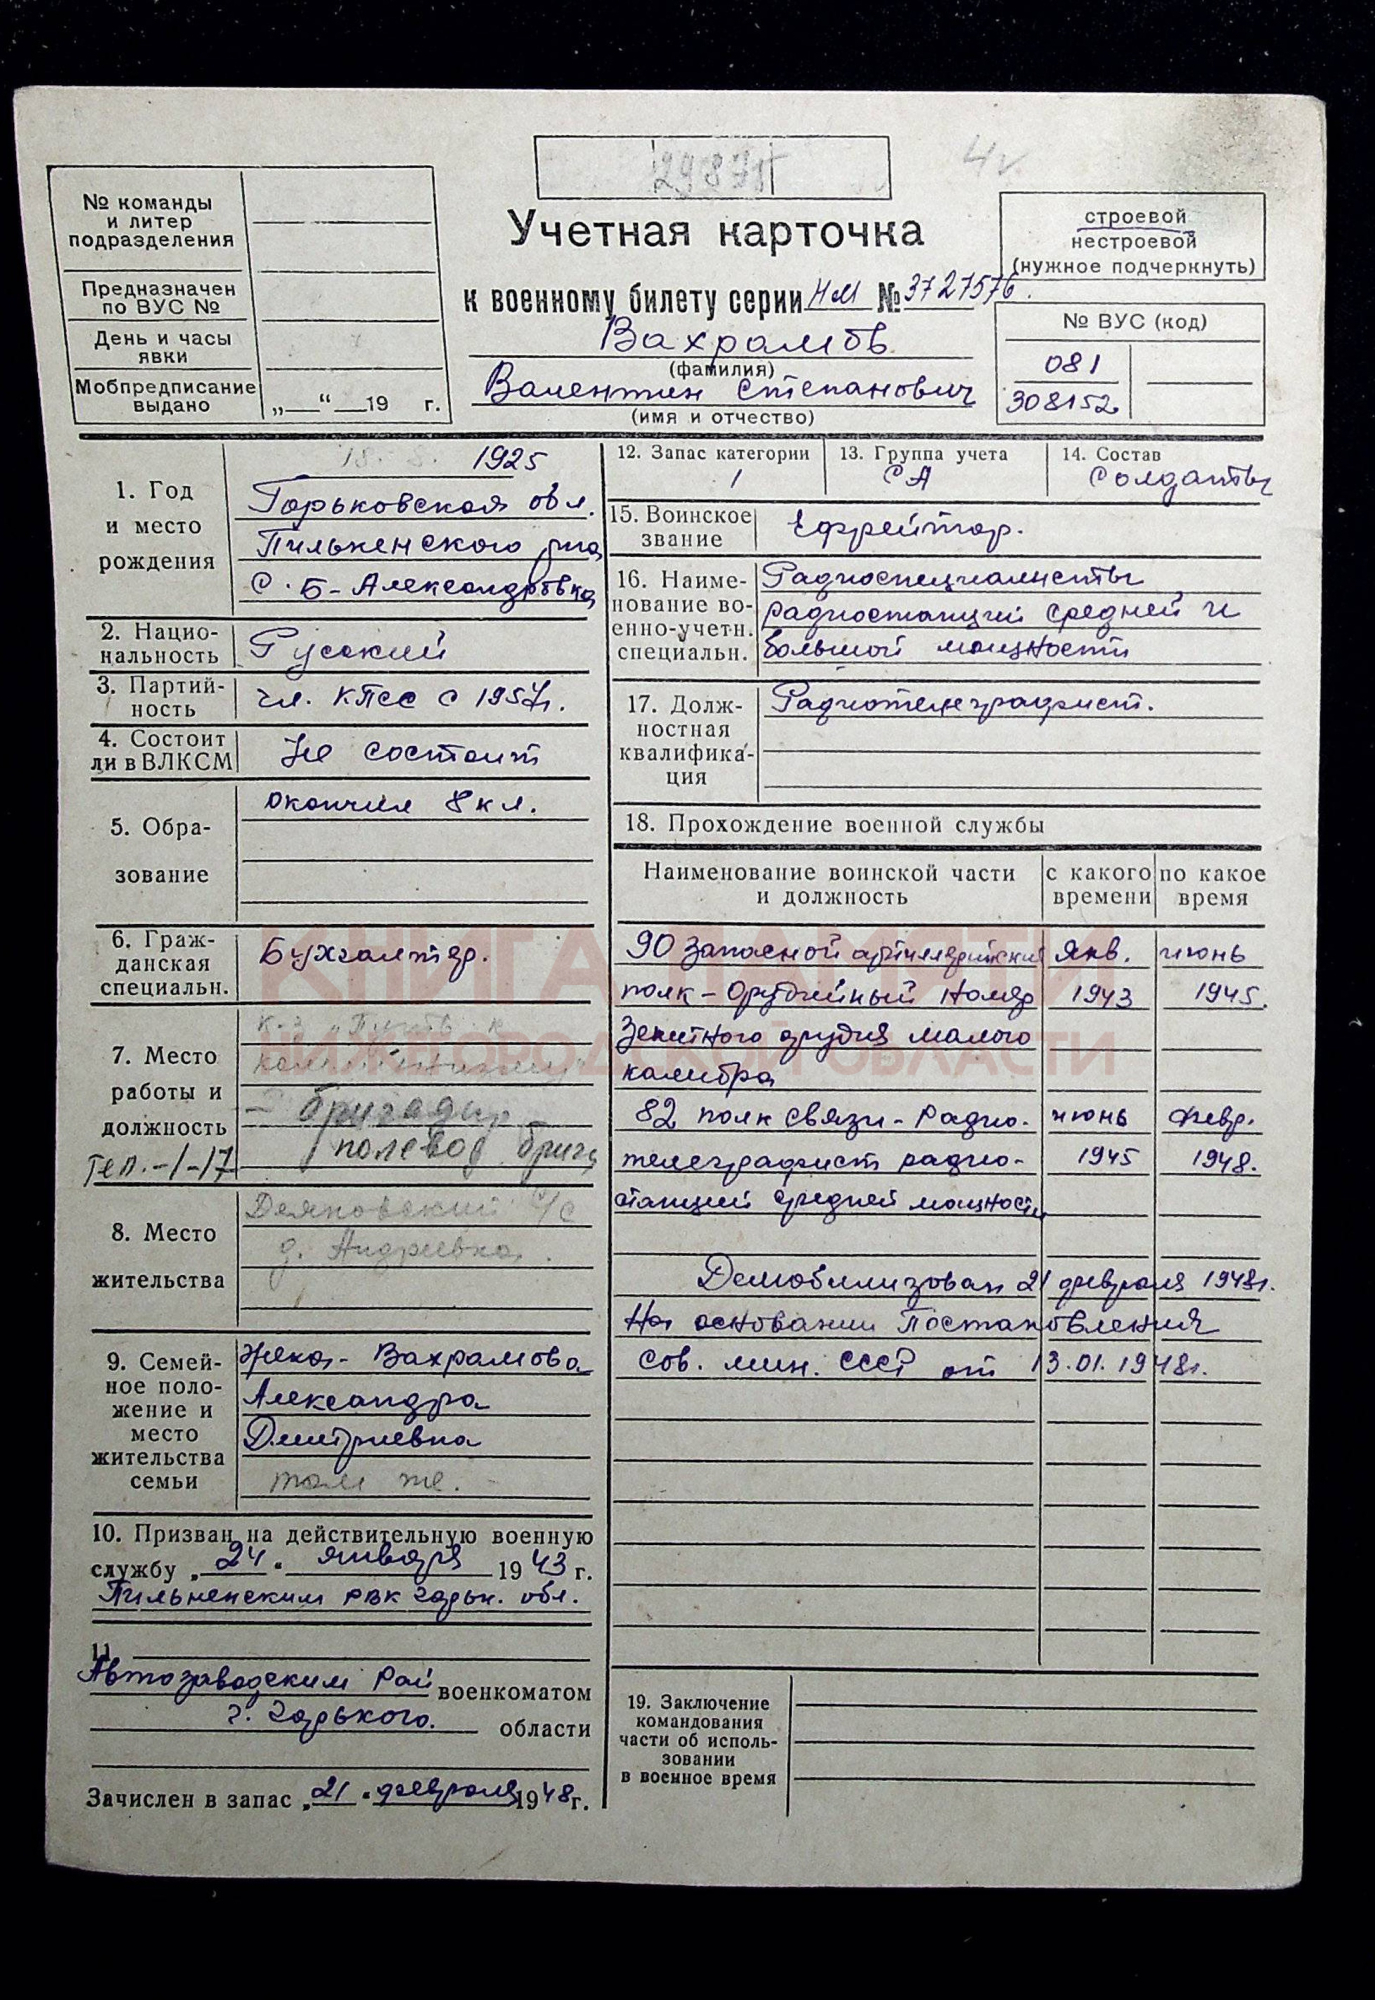 29875
4
№ команды
и литер
подразделения
Предназначен
по ВУС №
День и часы
явки
Мобпредписание
выдано
„ “ 19 г.
Учетная карточка
к военному билету серии НМ № 3727576.
Вахрамов
(фамилия)
Валентин Степанович
(имя и отчество)
строевой
нестроевой
(нужное подчеркнуть)
№ ВУС (код)
081
308152
1. Год
и место
рождения
18. 8. 1925
Горьковская обл.
Пильненского р-на
с. Б-Александровка
2. Нацио-
нальность
Русский
3. Партий-
ность
чл. КПСС с 1957г.
4. Состоит
ли в ВЛКСМ
Не состоит
5. Обра-
зование
окончил 8 кл.
6. Граж-
данская
специальн.
Бухгалтер.
7. Место
работы и
должность
тел.-1-17
к-з „Путь к
коммунизму"
- бригадир
полевод. бриг.
8. Место
жительства
Деяновский с/с
д. Андреевка.
9. Семей-
ное поло-
жение и
место
жительства
семьи
Жена - Вахрамова
Александра
Дмитриевна
там же. -
10. Призван на действительную военную
службу „24" января 1943 г.
Пильненским РВК Горьк. обл.
11.
Автозаводским Рай военкоматом
г. Горького. области
Зачислен в запас „21" февраля 1948 г.
12. Запас категории
1
13. Группа учета
СА
14. Состав
Солдаты
15. Воинское
звание
Ефрейтор.
16. Наиме-
нование во-
енно-учетн.
специальн.
Радиоспециалисты
радиостанций средней и
большой мощности
17. Долж-
ностная
квалифика-
ция
Радиотелеграфист.
18. Прохождение военной службы
Наименование воинской части
и должность
с какого
времени
по какое
время
90 запасной артиллерийский янв. июнь
полк - орудийный номер 1943 1945.
зенитного орудия малого
калибра
82 полк связи - Радио- июнь февр.
телеграфист радио- 1945 1948.
станций средней мощности
Демобилизован 21 февраля 1948г.
На основании Постановления
Сов. мин. СССР от 13.01.1948г.
19. Заключение
командования
части об исполь-
зовании
в военное время
КНИГА ПАМЯТИ
НИЖЕГОРОДСКОЙ ОБЛАСТИ